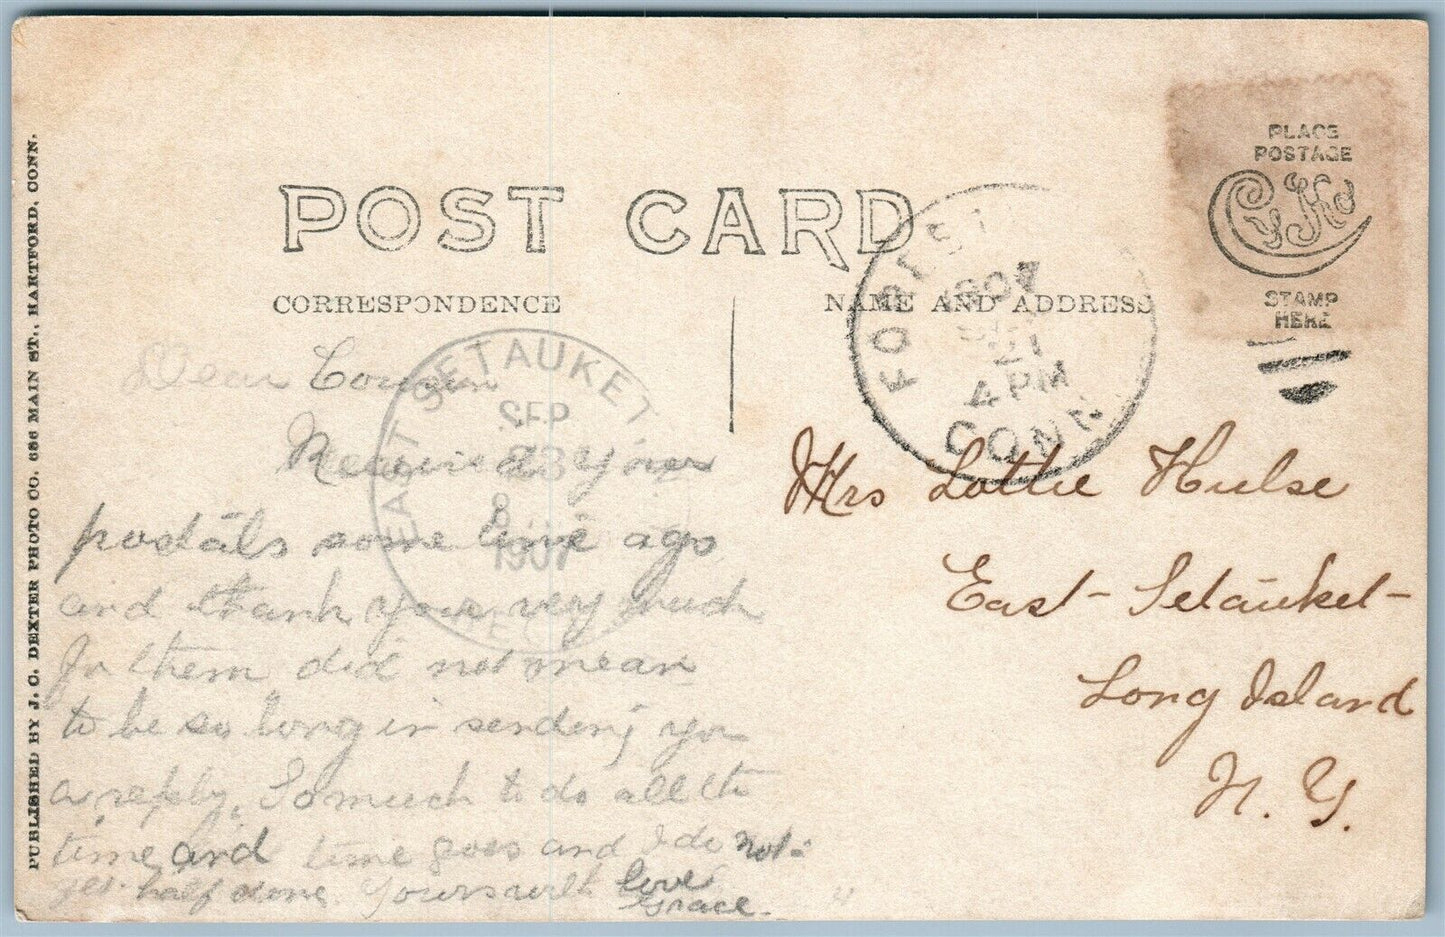 POST CARD
CORRESPONDENCE
NAME AND ADDRESS
PLACE
POSTAGE
CyKo
STAMP
HERE
PUBLISHED BY J. C. DEXTER PHOTO CO. 686 MAIN ST., HARTFORD, CONN.
1907
21
4 PM
CONN.
EAST SETAUKET
SEP
23
8
1907
REC'D
Dear Cousin
Received your
postals some time ago
and thank you very much
for them did not mean
to be so long in sending you
a reply. So much to do all the
time and time goes and I do not
get half done. Yours with love
Grace.
Mrs Lottie Hulse
East-Setauket-
Long Island
N. Y.